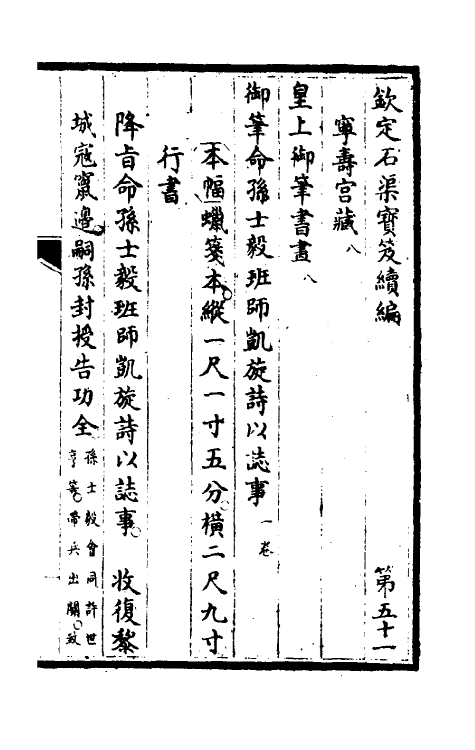 欽定石渠寶笈續編　第五十一
寧壽宮藏八
皇上御筆書畫八
御筆命孫士毅班師凱旋詩以誌事一卷
本幅蠟箋本縱一尺一寸五分橫二尺九寸
行書
降旨命孫士毅班師凱旋詩以誌事　收復黎
城寇竄邊嗣孫封授告功全孫士毅會同許世
亨等帶兵出關